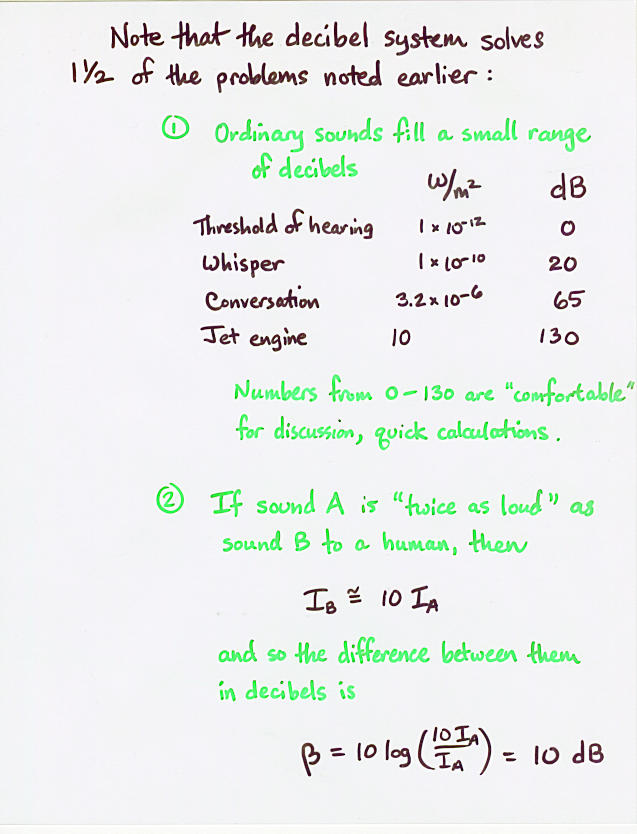 Note that the decibel system solves
1½ of the problems noted earlier:
① Ordinary sounds fill a small range
of decibels
W/m² dB
Threshold of hearing 1 × 10⁻¹² 0
Whisper 1 × 10⁻¹⁰ 20
Conversation 3.2 × 10⁻⁶ 65
Jet engine 10 130
Numbers from 0-130 are "comfortable"
for discussion, quick calculations.
② If sound A is "twice as loud" as
sound B to a human, then
I_B ≅ 10 I_A
and so the difference between them
in decibels is
β = 10 log (10 I_A / I_A) = 10 dB